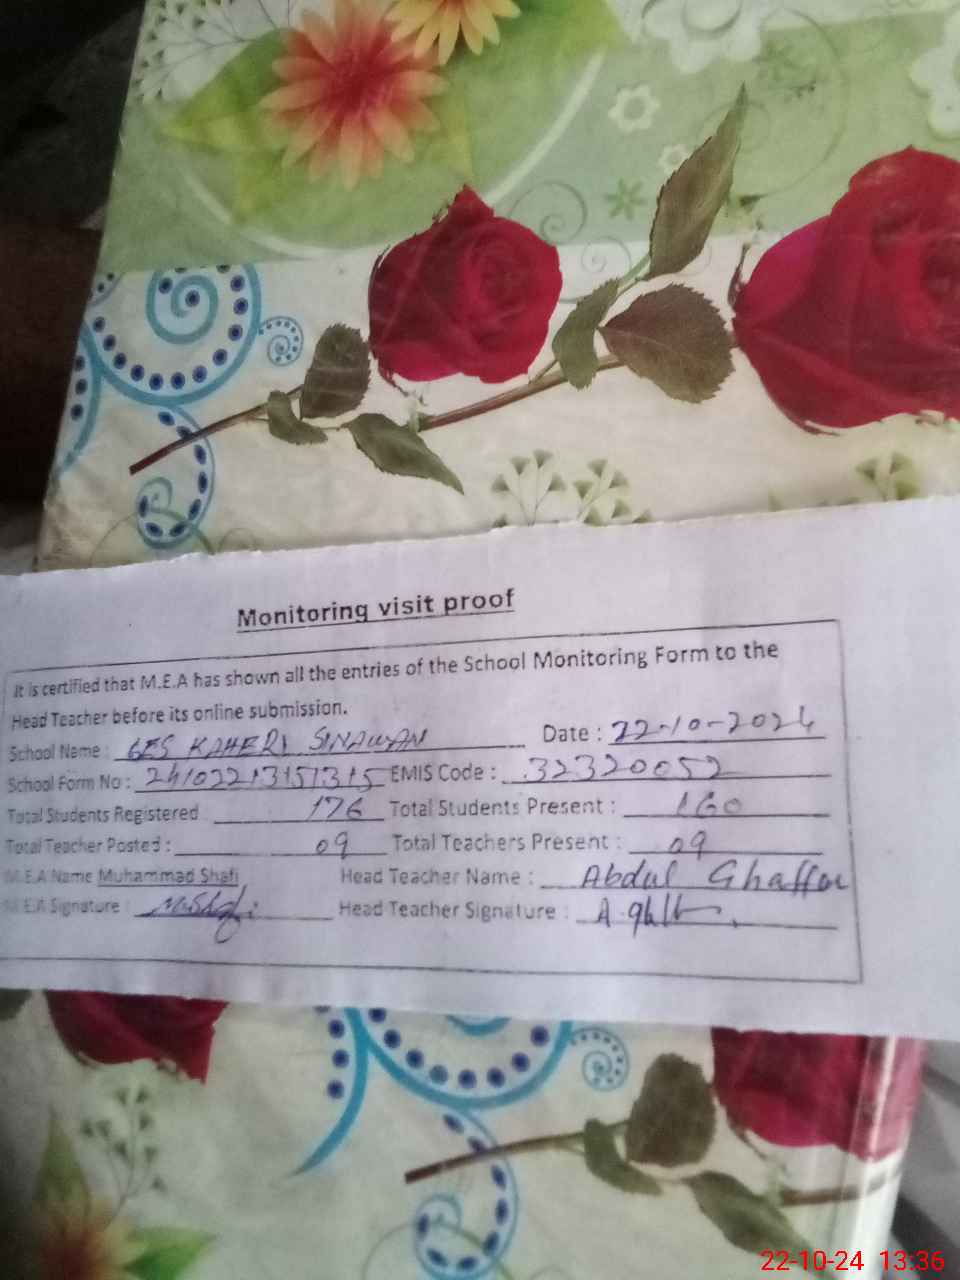 Monitoring visit proof
It is certified that M.E.A has shown all the entries of the School Monitoring Form to the
Head Teacher before its online submission.
School Name : GES KAHERI SINAWAN Date : 22-10-2024
School Form No : EMIS Code : 32320052
Total Students Registered : 176 Total Students Present : 160
Total Teacher Posted : 09 Total Teachers Present : 09
M.E.A Name Muhammad Shafi Head Teacher Name : Abdul Ghaffar
M.E.A Signature : M.Shafi Head Teacher Signature :
22-10-24 13:36